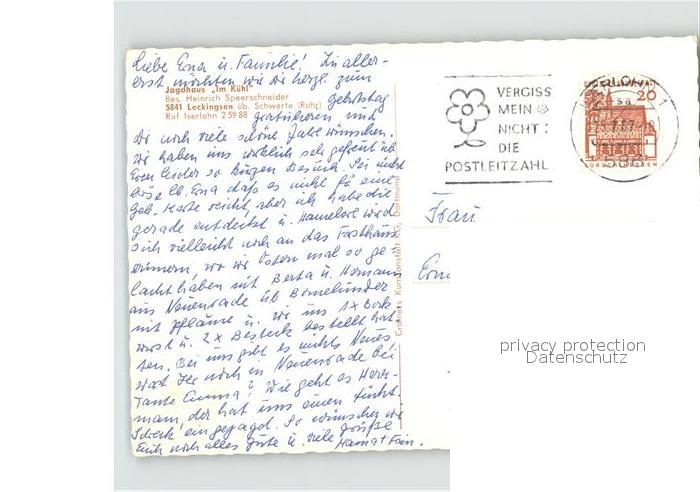 Liebe Erna u. Familie! Zu aller-
erst möchten wir dir herzl. zum
Jagdhaus „Im Kühl"
Bes. Heinrich Speerschneider
5841 Leckingsen üb. Schwerte (Ruhr)
Ruf Iserlohn 2 59 88
Geburtstag
gratulieren und
Dir noch viele schöne Jahre wünschen.
Wir haben uns wirklich sehr gefreut üb.
Euren leider so kurzen Besuch. Sei nicht
böse lb. Erna daß es nicht für eine
Geb. Karte reicht, aber ich habe die
gerade entdeckt u. Hannelore wird
sich vielleicht noch an das Fasthaus
erinnern, wo wir Ostern mal so ge-
lacht haben mit Berta u. Hermann
aus Neuenrade üb
mit Pflaume u. wir uns 1x Bock-
wurst u. 2x Besteck bestellt hat-
ten. Bei uns gibt es nichts Neues
Wart Ihr noch in Neuenrade bei
Tante Emma? Wie geht es Herr-
mann, der hat uns einen
Schreck eingejagd. So wünschen wir
Euch noch alles Gute u. viele Grüße
Hanna + Fam.
Cramers Kunstanstalt KG, Dortmund
VERGISS
MEIN
NICHT:
DIE
POSTLEITZAHL
ISERLOHN 1
20
LORSCH/HESSEN
Frau
Erna
privacy protection
Datenschutz